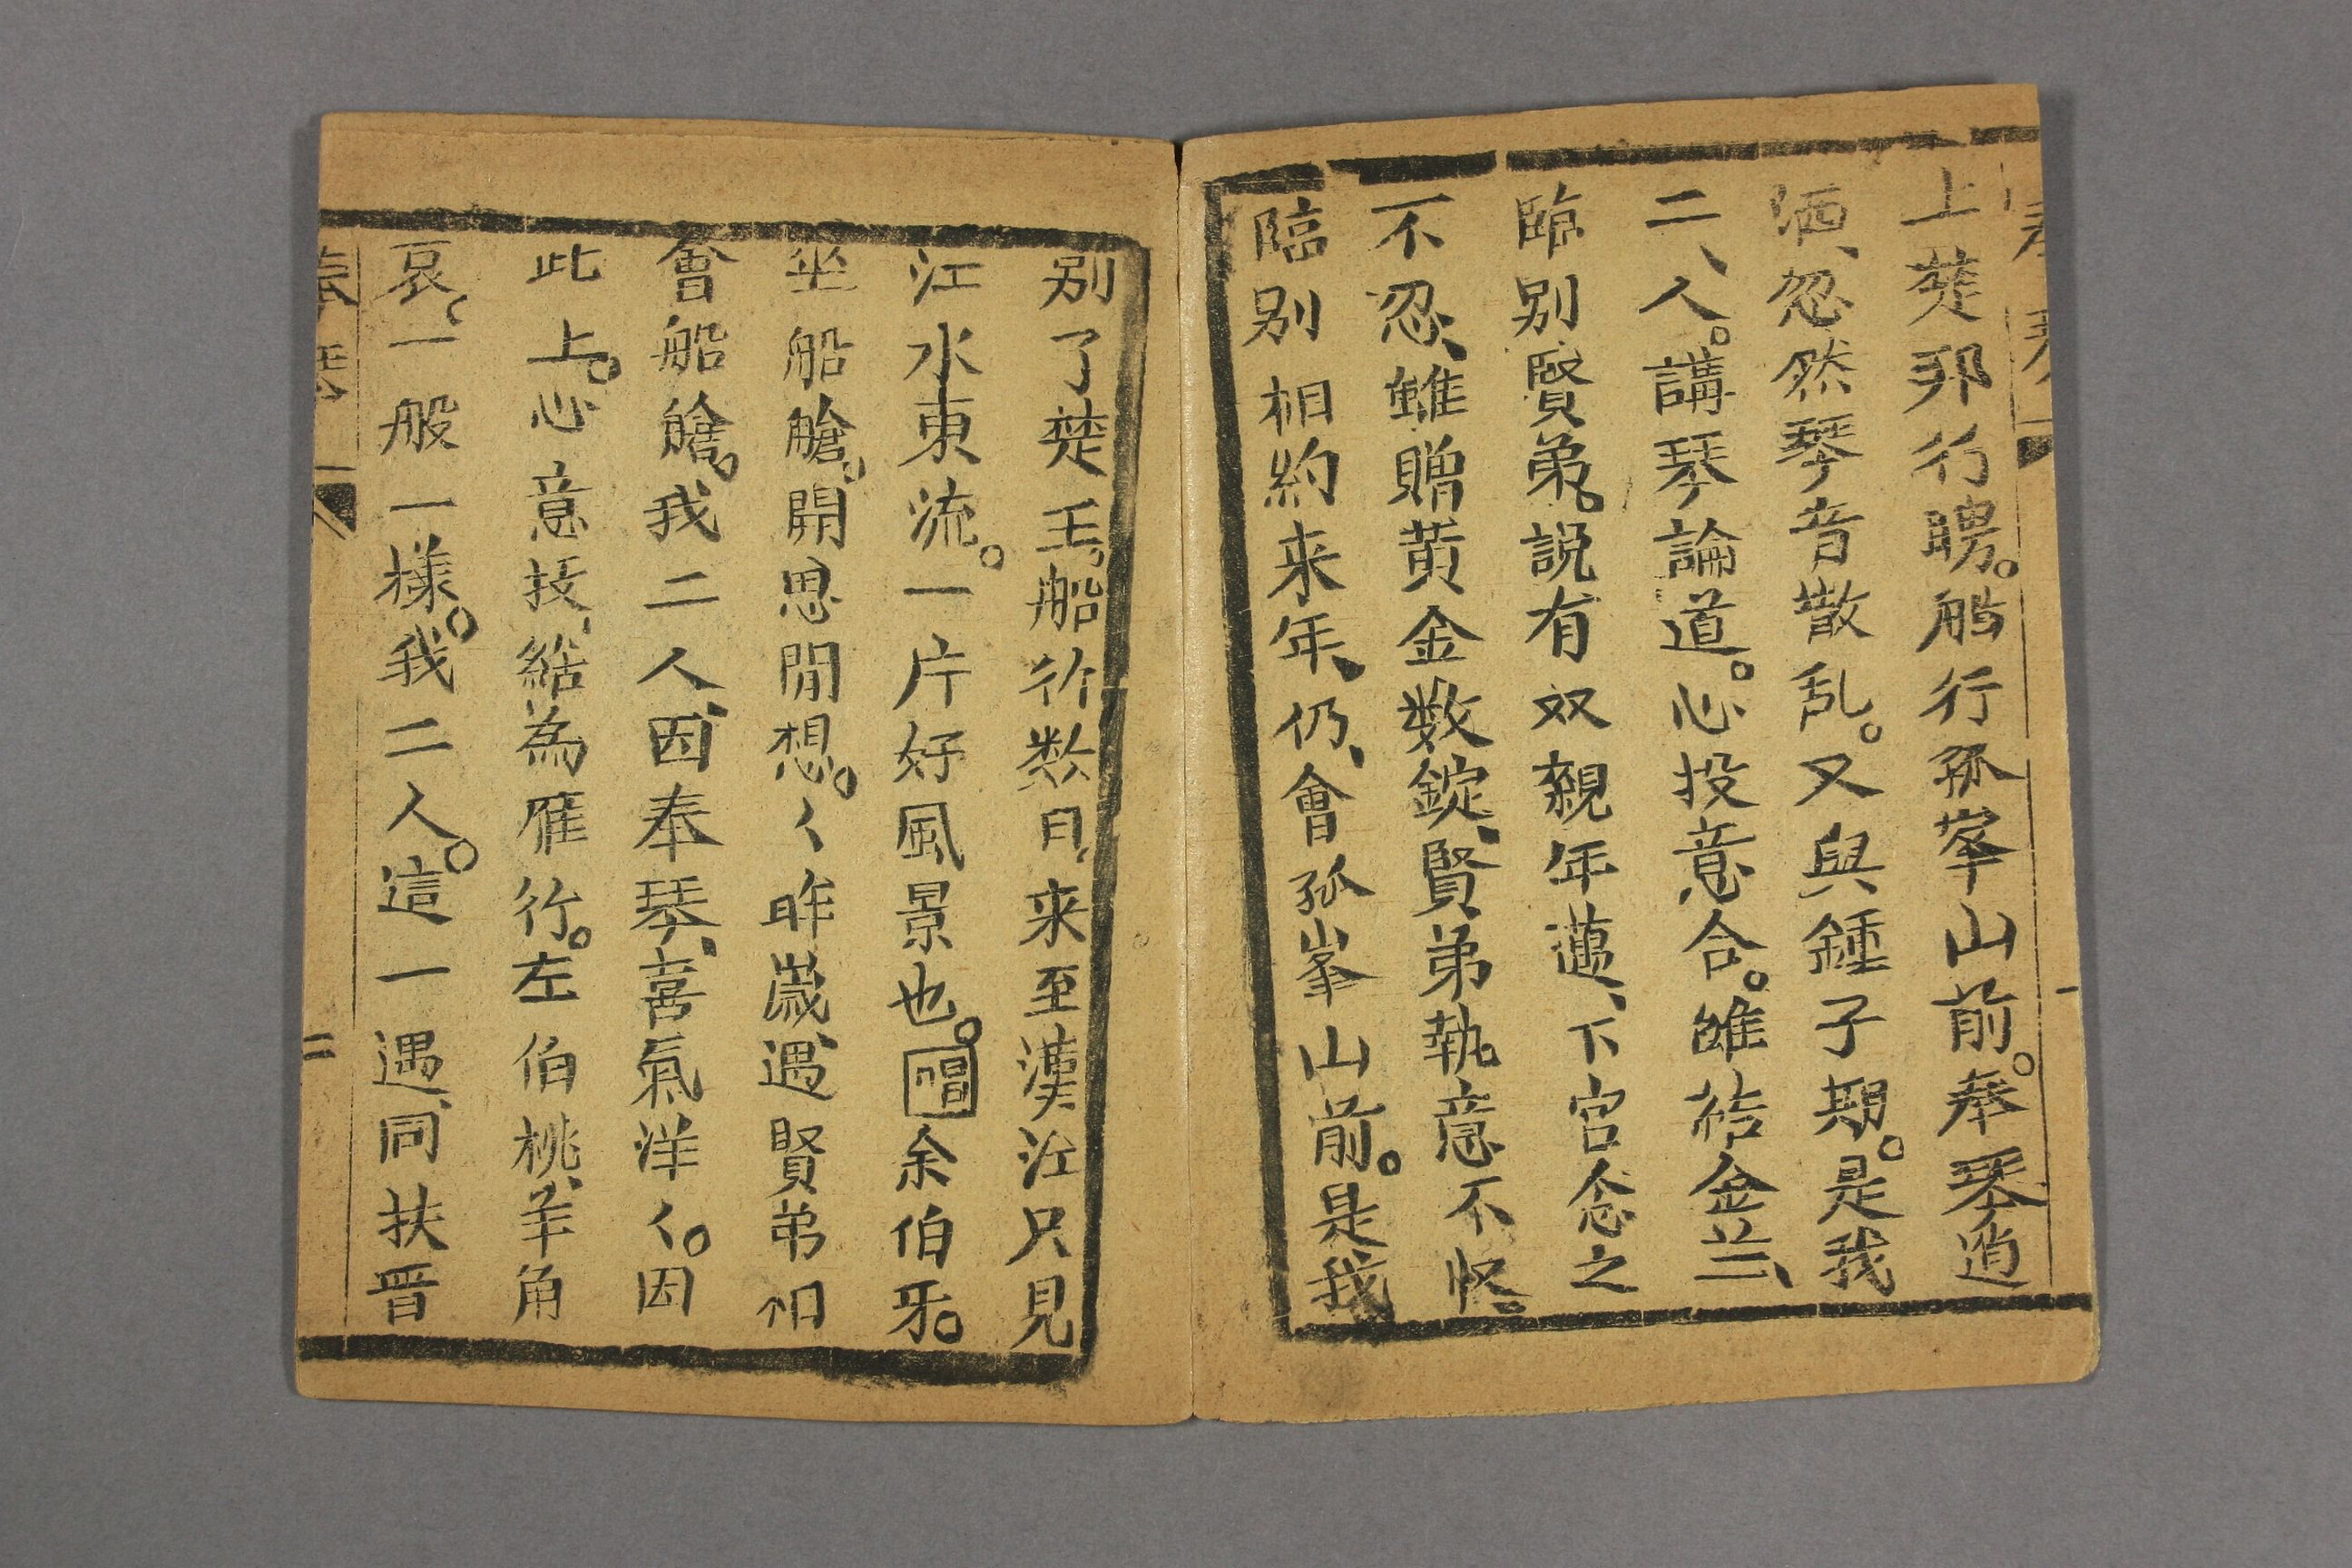 上楚邦行聘。船行孤峯山前。奉琴逍
洒、忽然琴音散乱。又與鍾子期。是我
二、人。講琴論道。心投意合。雖結金兰、
臨别賢弟。説有双親年邁、下官念之
不忍、雖贈黄金数錠、賢弟執意不收。
臨别相約来年、仍、會孤峯山前。是我
别了楚王、船行数日、来至漢江只見
江水東流。一片好風景也。唱余伯牙。
坐船艙。開思閒想。〱昨歲、遇賢弟相
會船艙。我二人、因奉琴、喜氣洋〱。因
此上。心意投、結為雁行。左伯桃、羊角
哀。一般一様。我二人。這一遇、同扶晋
一
二